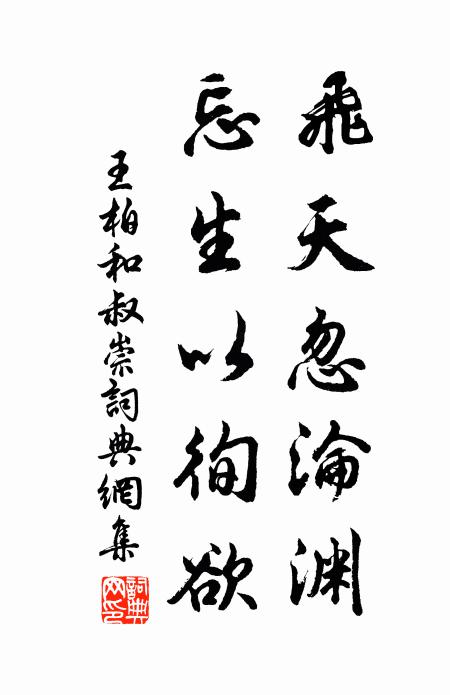 飛天忽淪淵
忘生以徇欲
王柏和叔崇詞典網集
詞典网印